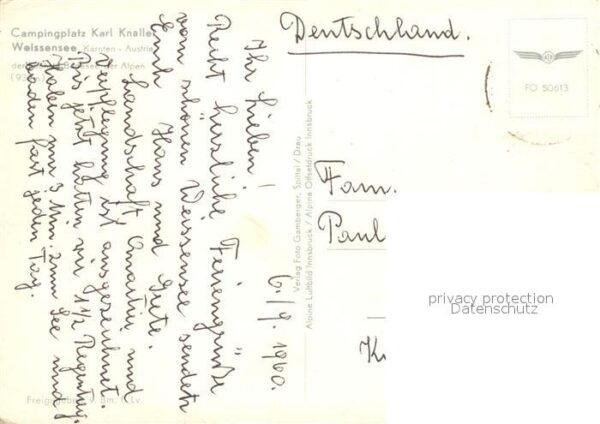 Campingplatz Karl Knaller
Weissensee, Kärnten - Austria
der Alpen
6./9. 1960.
Ihr Lieben!
Recht herzliche Feriengrüße
vom schönen Weissensee sendet
Euch Hans und Grete.
Landschaft, Quartier und
Verpflegung ist ausgezeichnet.
Bis jetzt hatten wir 1 1/2 Regentag.
Haben nur 3 Min. zum See und
baden fast jeden Tag.
Freigegeben v. Bm. f. Lv.
Verlag Foto Gamberger, Spittal / Drau
Alpine Luftbild Innsbruck / Alpine Offsetdruck Innsbruck
Deutschland.
FO 50613
Fam.
Paul
privacy protection
Datenschutz